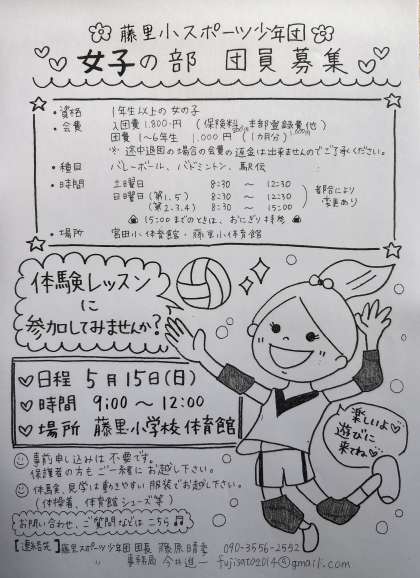 藤里小スポーツ少年団
女子の部 団員募集
・資格 1年生以上の女の子
・会費 入団費 1,800円 (保険料, 本部登録費他)
団費 1〜6年生 1,000円 (1カ月分)
※ 途中退団の場合の会費の返金は出来ませんのでご了承ください。
・種目 バレーボール、バドミントン、駅伝
・時間 土曜日 8:30 〜 12:30
日曜日 (第1.5) 8:30 〜 12:30
(第2.3.4) 8:30 〜 15:00
都合により変更あり
15:00までのときは、おにぎり持参
・場所 宮田小体育館・藤里小体育館
体験レッスン
に
参加してみませんか?
♡日程 5月15日(日)
♡時間 9:00 〜 12:00
♡場所 藤里小学校 体育館
楽しいよ♡
遊びに
来てね♡
事前申し込みは不要です。
保護者の方もご一緒にお越し下さい。
体験、見学は動きやすい服装でお越し下さい。
(体操着、体育館シューズ等)
お問い合わせ、ご質問などはこちら♪
【連絡先】藤里スポーツ少年団 団長 藤原晴幸 090-3556-2552
〃 事務局 今井進一 fujisato2014@gmail.com